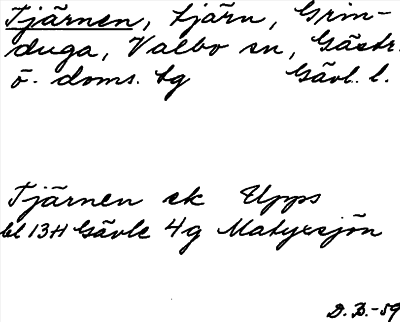 Tjärnen, tjärn, Grin-
duga, Valbo sn, Gästr.
ö. doms. tg Gävl. l.
Tjärnen ek Upps
bl 13H Gävle 4g Matyxsjön
D. B. -59